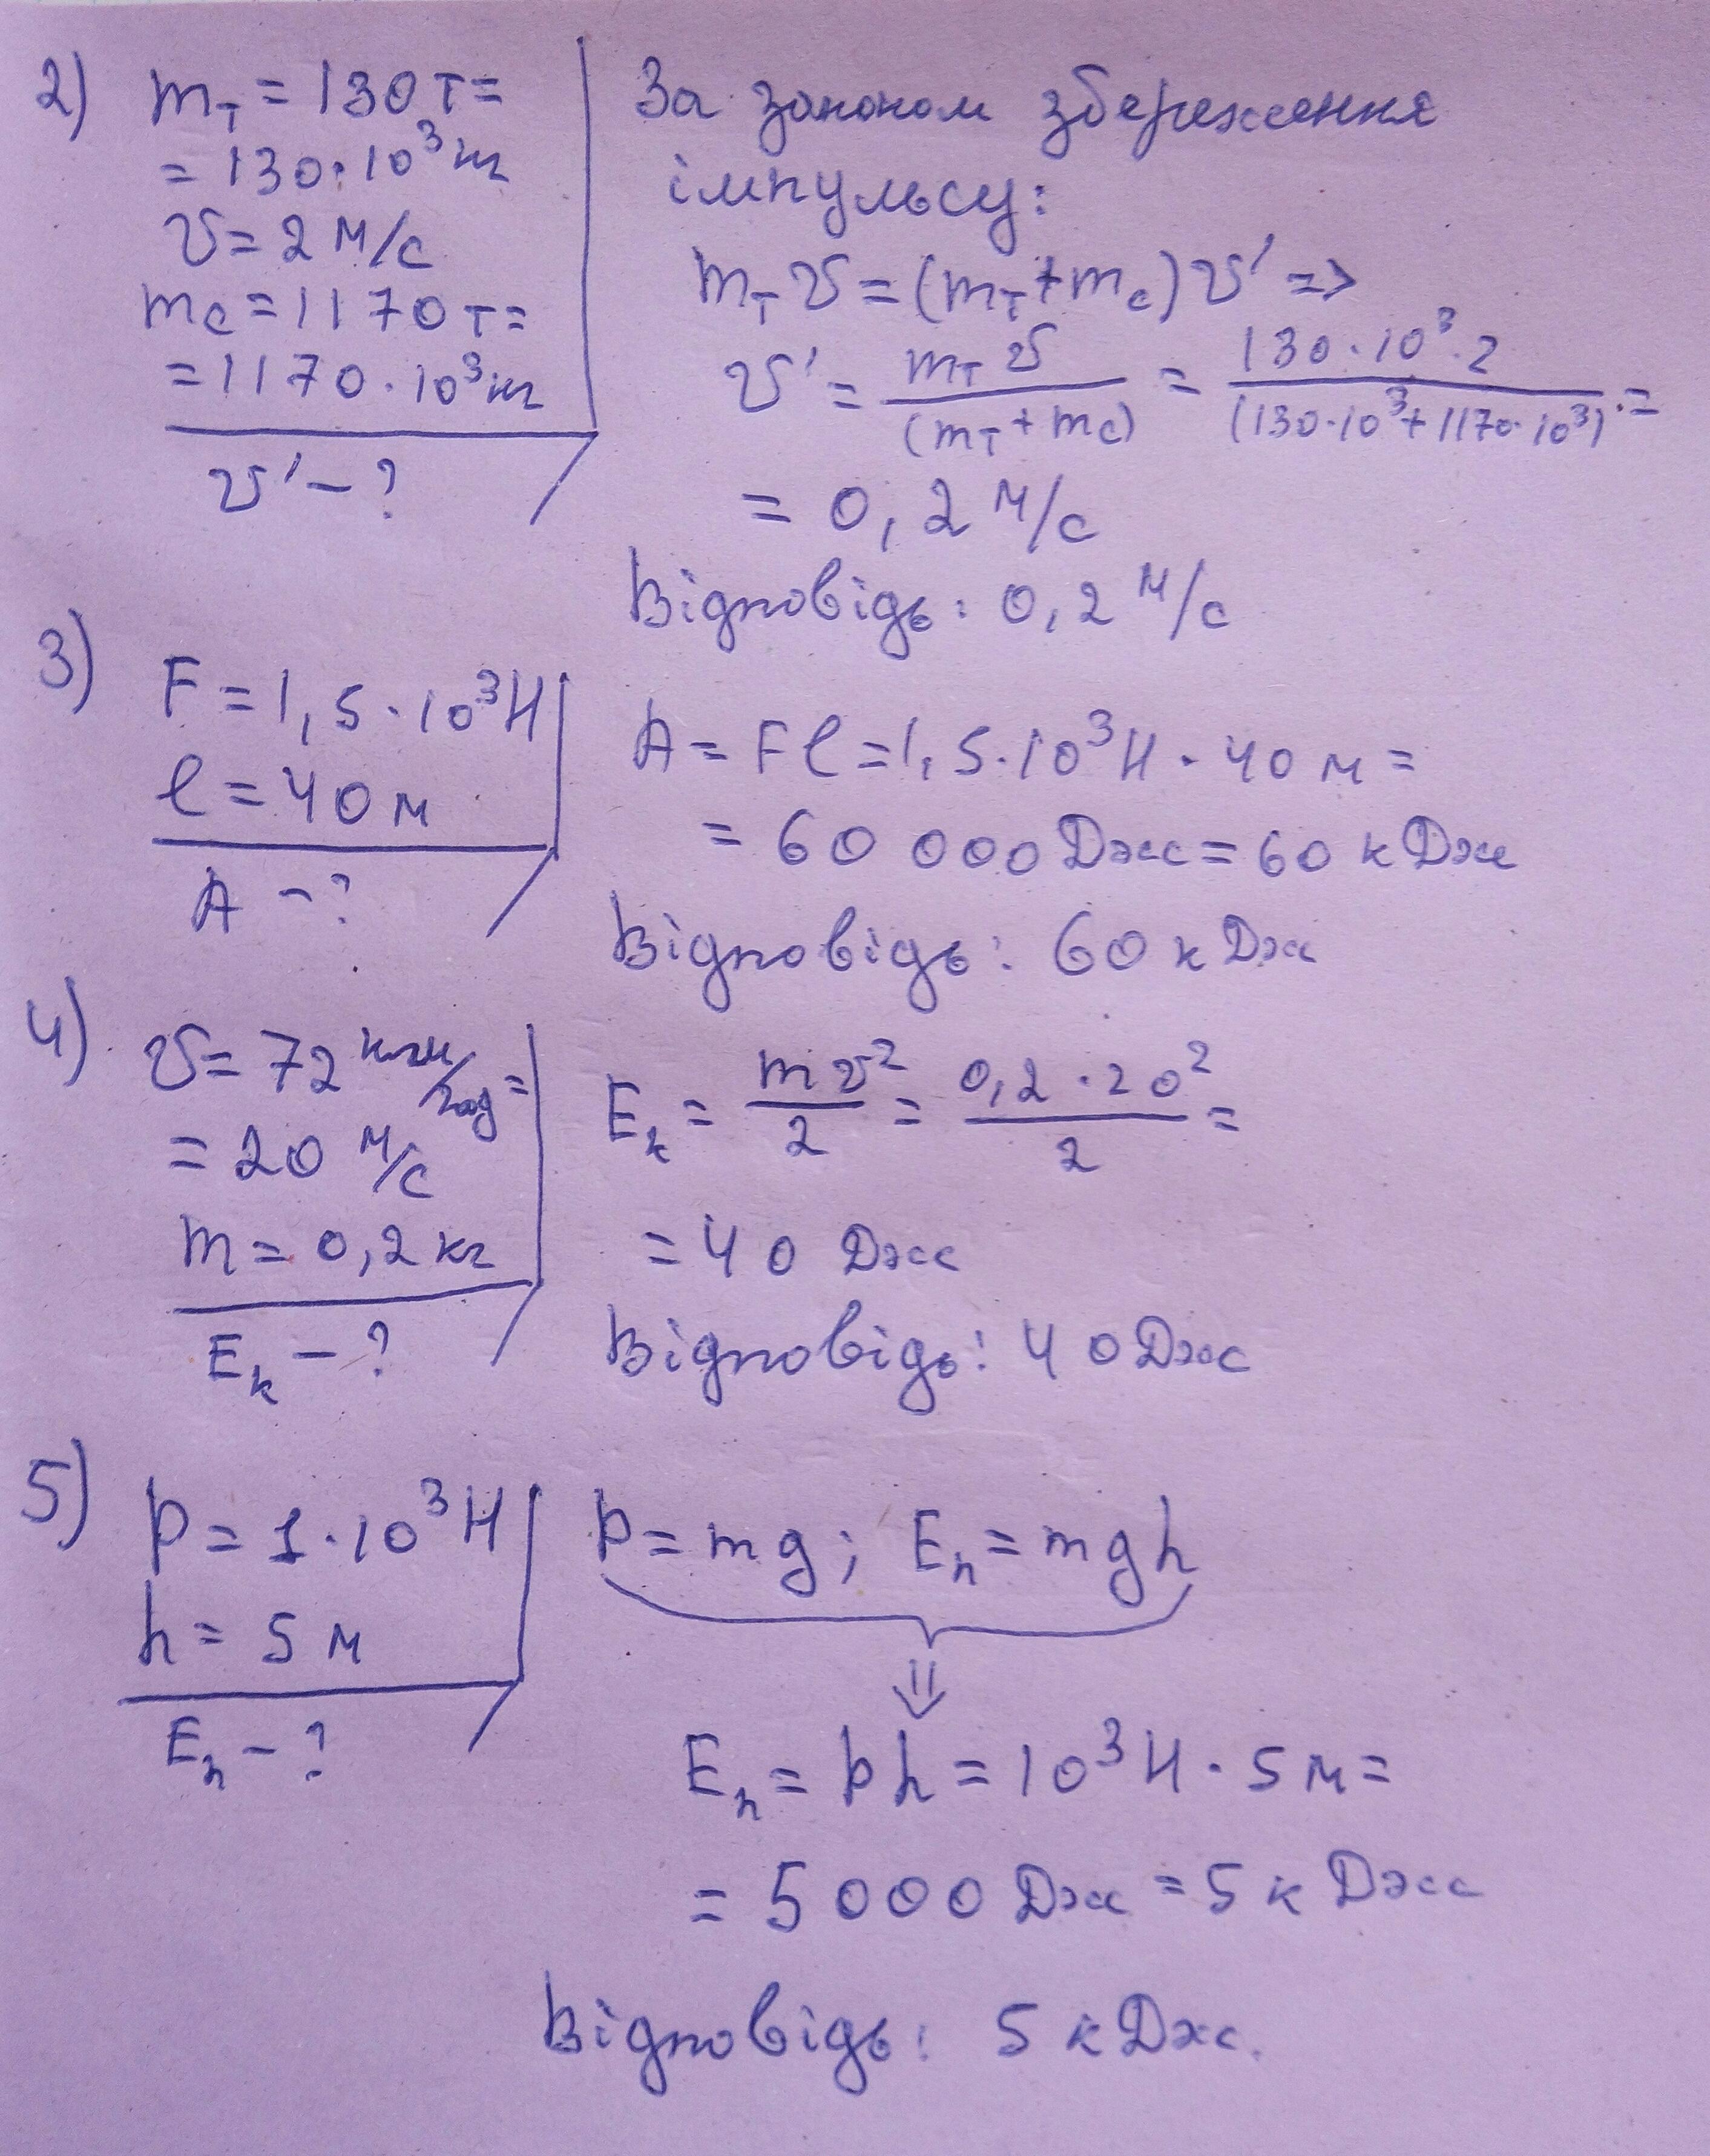 2) mт = 130 т =
= 130·10³ кг
v = 2 м/с
mс = 1170 т =
= 1170·10³ кг
v' – ?
За законом збереження
імпульсу:
mт v = (mт + mс) v' =>
v' = mт v / (mт + mс) = 130·10³·2 / (130·10³ + 1170·10³) =
= 0,2 м/с
Відповідь: 0,2 м/с
3) F = 1,5·10³ Н
l = 40 м
A – ?
A = Fl = 1,5·10³ Н · 40 м =
= 60 000 Дж = 60 кДж
Відповідь: 60 кДж
4) v = 72 км/год =
= 20 м/с
m = 0,2 кг
Eк – ?
Eк = mv²/2 = 0,2·20²/2 =
= 40 Дж
Відповідь: 40 Дж
5) P = 1·10³ Н
h = 5 м
Eп – ?
P = mg; Eп = mgh
⇓
Eп = Ph = 10³ Н · 5 м =
= 5000 Дж = 5 кДж
Відповідь: 5 кДж.